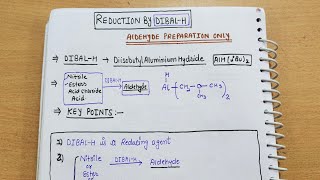 REDUCTION BY DIBAL-H
ALDEHYDE PREPARATION ONLY
⇒ DIBAL-H → Diisobutyl Aluminium Hydride AlH(iBu)2
⇒ Nitrile
Esters
Acid Chloride
Acid
DIBAL-H → Aldehyde
H
AL
CH2 - CH - CH3
CH3
2
⇒ KEY POINTS:-
1) DIBAL-H is a Reducing agent
2) Nitrile
or
Ester
DIBAL-H → Aldehyde